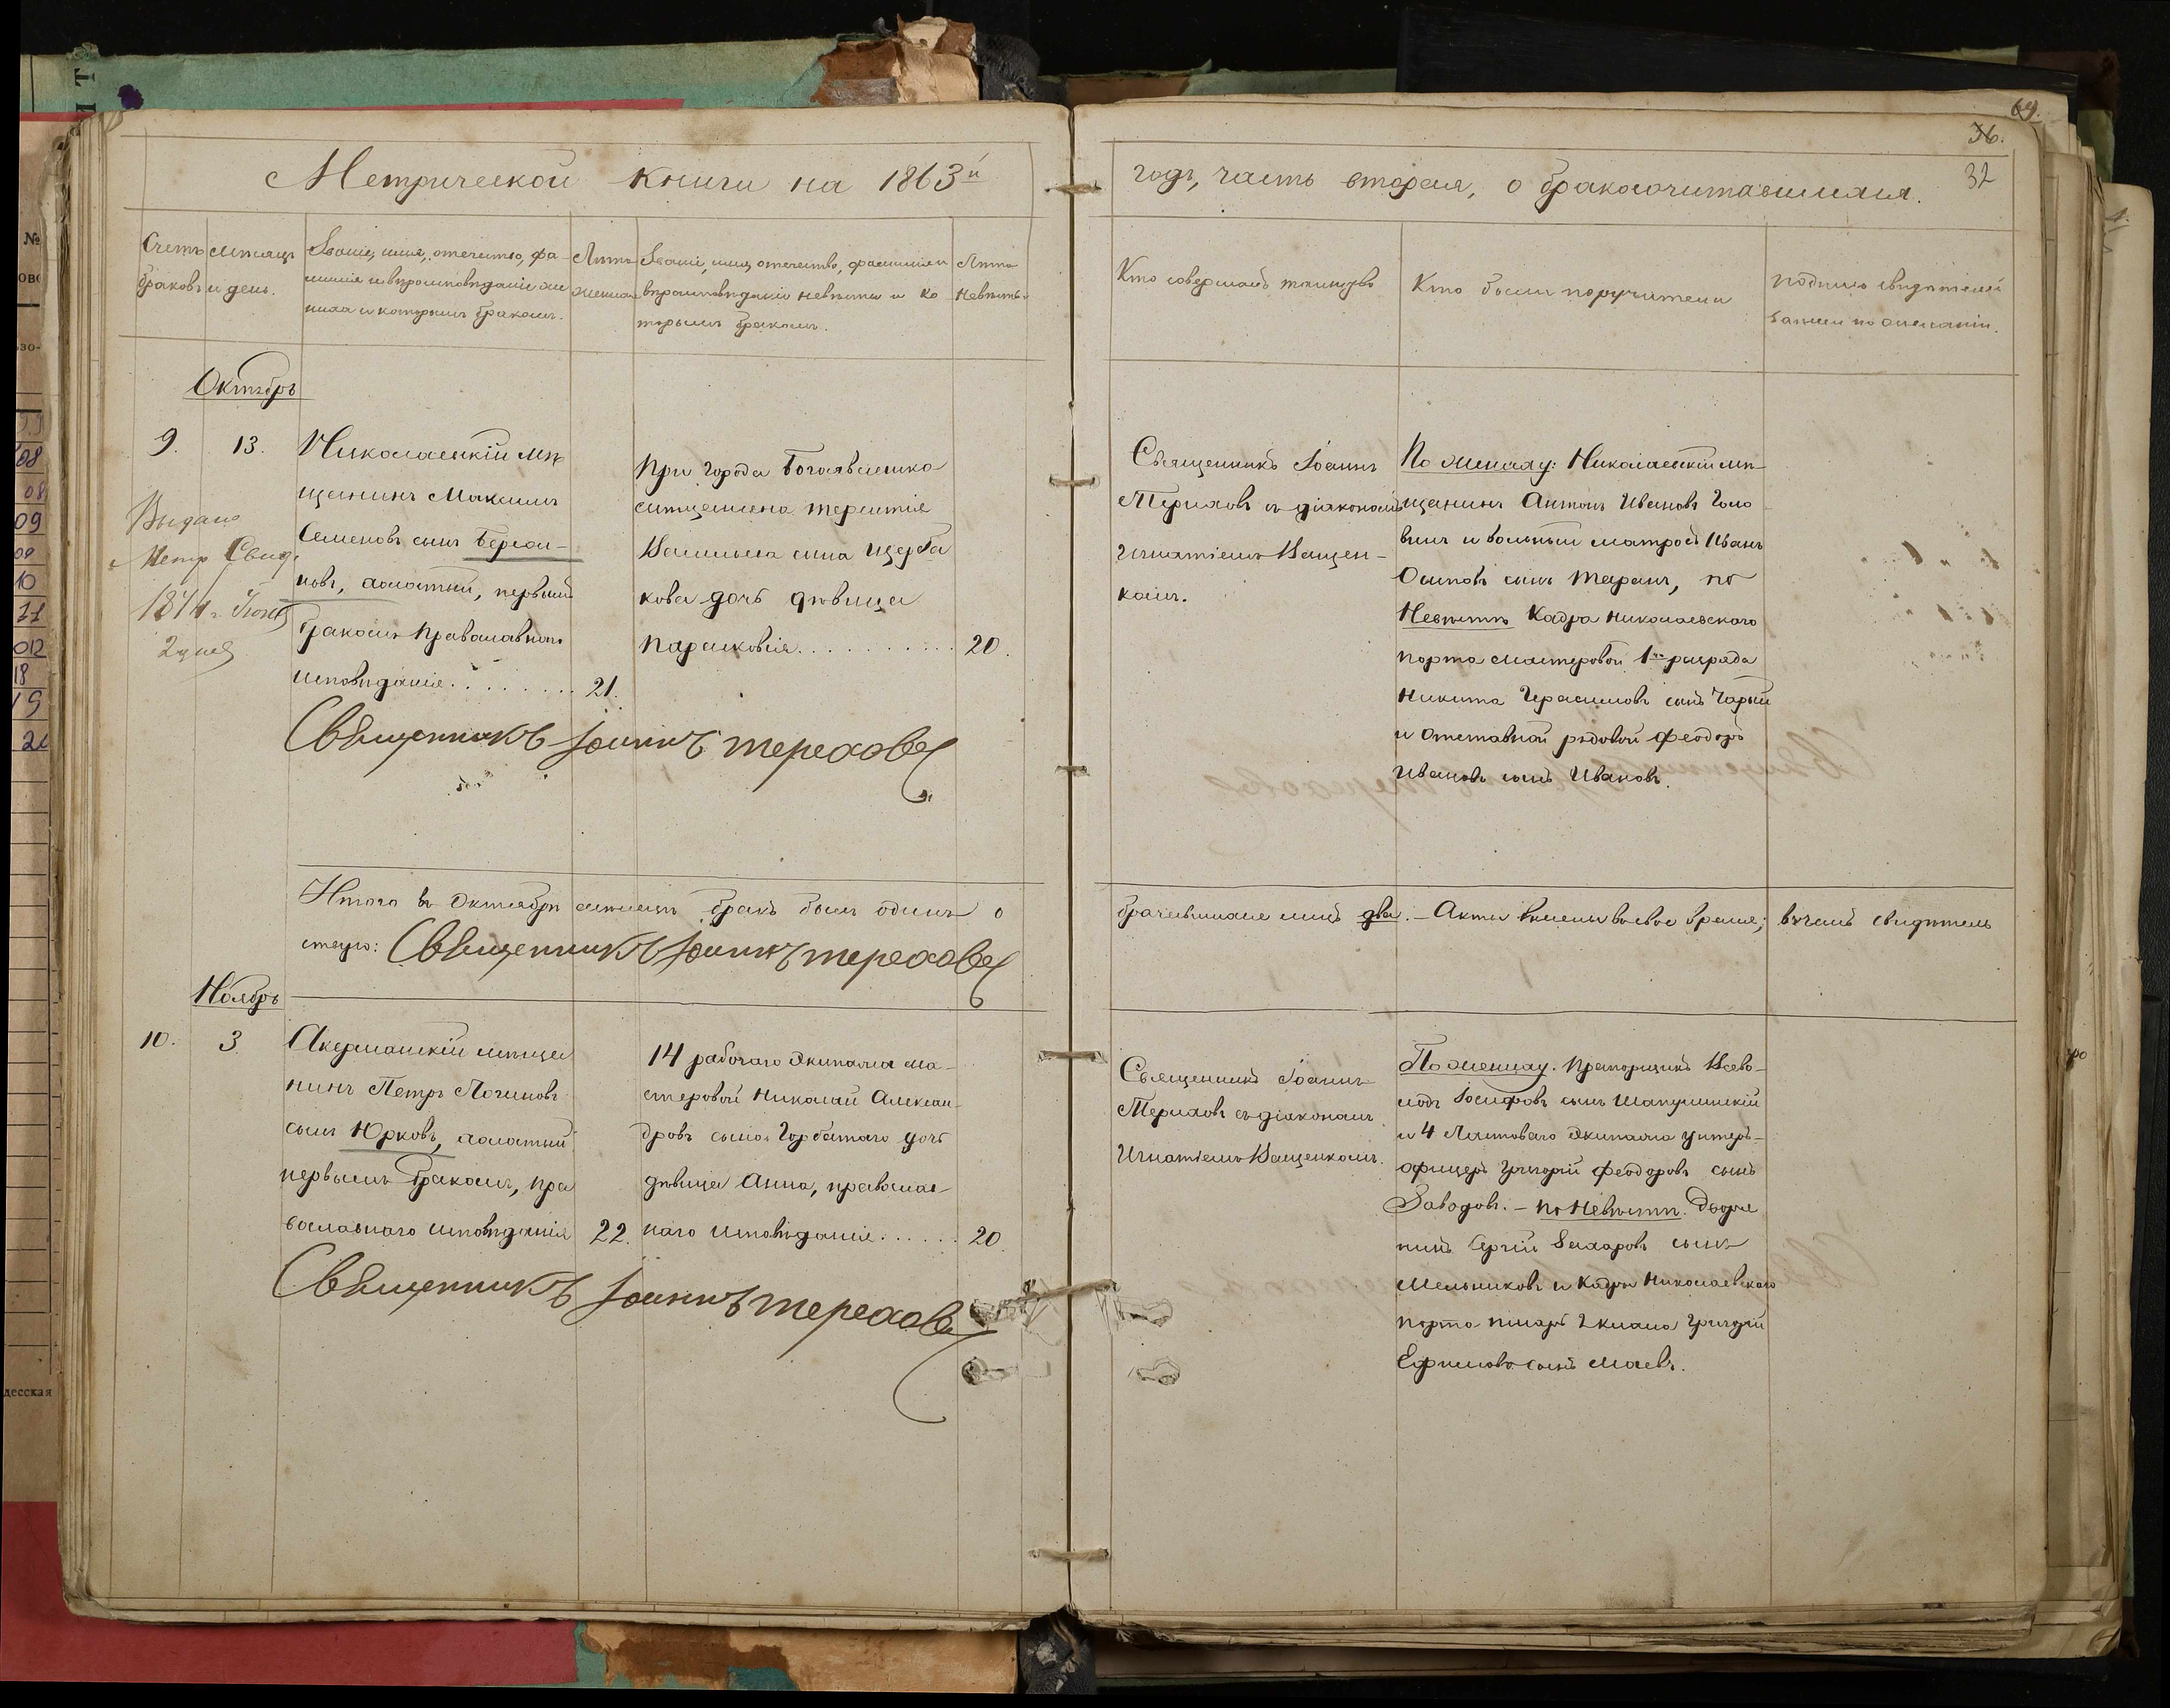 Метрической книги на 1863й
годъ, часть вторая, о бракосочитавшихся.
36.
32
Счетъ браковъ
Мѣсяцъ и день.
Званіе, имя, отечество, фа-
милія и вѣроисповѣданіе же-
ниха и которымъ бракомъ.
Лѣта
жениха
Званіе, имя, отечество, фамилія и
вѣроисповѣданіе невѣсты и ко
торымъ бракомъ.
Лѣта
невѣсты
Кто совершалъ таинство
Кто были поручители
подпись свидѣтелей
записи по желанію.
Октябрь
9.
13.
Николаевскій мѣ
щанинъ Максимъ
Семеновъ сынъ
новъ, холостый, первымъ
бракомъ православнаго
исповѣданія
21.
При города Богоявленска
Васильева сына Щерба
кова дочь дѣвица
Парасковія
20.
Выдано
Метр. Свид.
Священникъ Іоаннъ
Тереховъ съ діакономъ
Игнатіемъ Ващен-
комъ.
По женихѣ: Николаевскій мѣ-
щанинъ Антонъ Ивановъ Голо
винъ и вольный матросъ Иванъ
Осиповъ сынъ Таранъ, по
Невѣстѣ Кадра Николаевского
порта мастеровой 1го разряда
Никита Герасимовъ сынъ Чарый
и отставной рядовой Феодоръ
Ивановъ сынъ Ивановъ.
Священникъ Іоаннъ Тереховъ
Итого въ Октябрѣ мѣсяцѣ бракъ былъ одинъ о
брачившихся лицъ два. – Акты писаны во свое время; въ чемъ свидѣтель
ствую: Священникъ Іоаннъ Тереховъ
Ноябрь
10.
3
Акерманскій мѣща
нинъ Петръ Логиновъ
сынъ Юрковъ, холостый
первымъ бракомъ, пра
вославнаго исповѣданія
22.
14 рабочаго Экипажа ма-
стеровой Николай Алексан-
дровъ сына Горбатаго дочь
дѣвица Анна, православ-
наго исповѣданія
20.
Священникъ Іоаннъ
Тереховъ съ діакономъ
Игнатіемъ Ващенкомъ.
По женихѣ. Прапорщикъ Всево-
лодъ Іосифовъ сынъ
и 4 Ластоваго Экипажа унтеръ-
офицеръ Григорій Феодоровъ сынъ
Заводовъ. – по Невѣстѣ. Дворя
нинъ Сергій Захаровъ сынъ
Мельниковъ и Кадра Николаевскаго
порта писарь 2 класса Григорій
Ефимовъ сынъ Маевъ.
Священникъ Іоаннъ Тереховъ